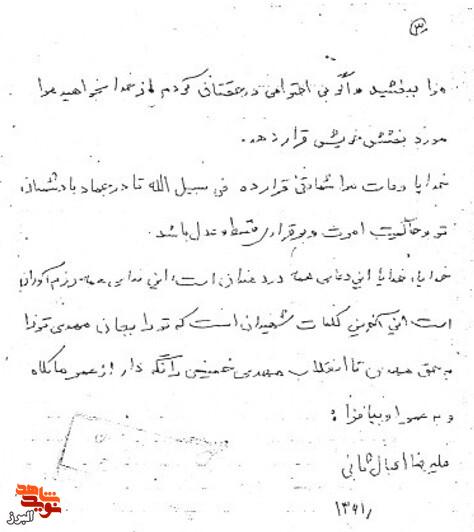 ۳
مرا ببخشید و اگر بی احترامی در حقتان کردم از خدا بخواهید مرا
مورد بخشش خویش قرار دهد.
خدایا وفات مرا شهادتی قرار ده فی سبیل الله تا در جهاد با دشمنان
تو و حاکمیت امرت و برقراری قسط و عدل باشد.
خدایا، خدایا این دعای همه دردمندان است، این ندای همه رزم آوران
است، این آخرین کلمات شهیدان است که تو را بجان مهدی تو را
به حق مهدی تا انقلاب مهدی خمینی را نگه دار از عمر ما بکاه
و به عمر او بیافزا
علیرضا اقبال ثانی
۱۳۶۱/
نوید شاهد
البرز